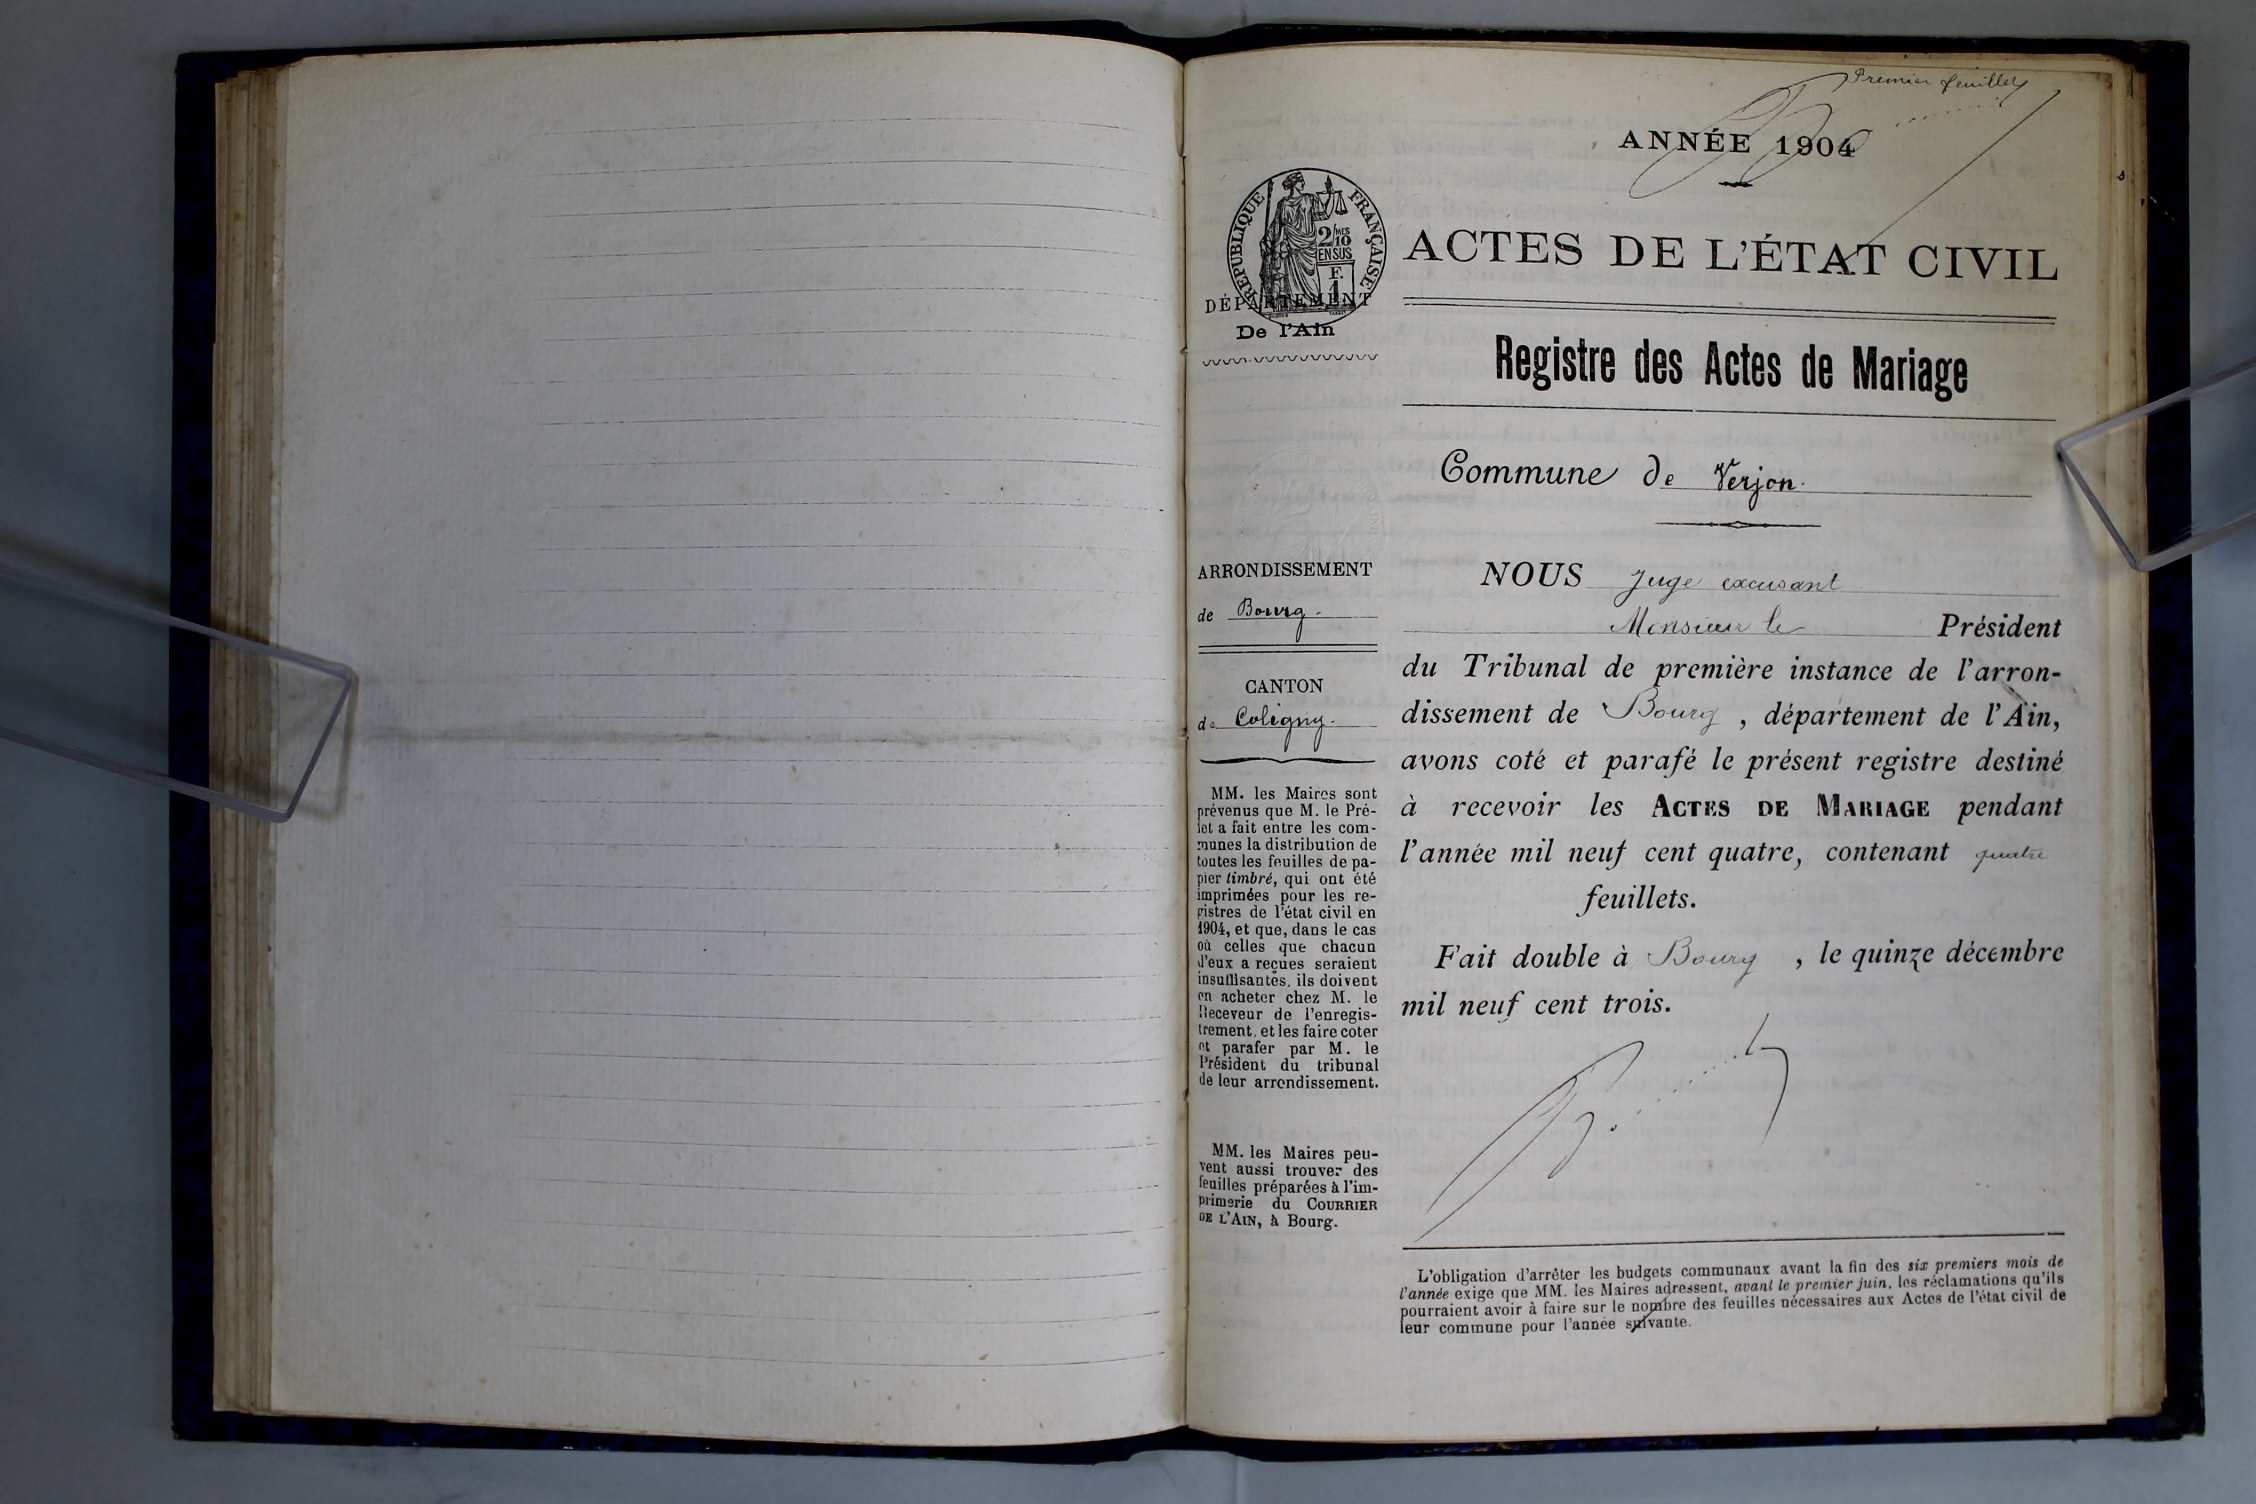 Premier feuillet
ANNÉE 1904
RÉPUBLIQUE FRANÇAISE
2/10 MES
EN SUS
F.
1
DÉPARTEMENT
De l'Ain
ACTES DE L'ÉTAT CIVIL
Registre des Actes de Mariage
Commune de Verjon.
ARRONDISSEMENT
de Bourg.
CANTON
de Coligny.
MM. les Maires sont
prévenus que M. le Pré-
fet a fait entre les com-
munes la distribution de
toutes les feuilles de pa-
pier timbré, qui ont été
imprimées pour les re-
gistres de l'état civil en
1904, et que, dans le cas
où celles que chacun
d'eux a reçues seraient
insuffisantes, ils doivent
en acheter chez M. le
Receveur de l'enregis-
trement, et les faire coter
et parafer par M. le
Président du tribunal
de leur arrondissement.
MM. les Maires peu-
vent aussi trouver des
feuilles préparées à l'im-
primerie du COURRIER
DE L'AIN, à Bourg.
NOUS Juge excusant
Monsieur le Président
du Tribunal de première instance de l'arron-
dissement de Bourg, département de l'Ain,
avons coté et parafé le présent registre destiné
à recevoir les ACTES DE MARIAGE pendant
l'année mil neuf cent quatre, contenant quatre
feuillets.
Fait double à Bourg, le quinze décembre
mil neuf cent trois.
L'obligation d'arrêter les budgets communaux avant la fin des six premiers mois de
l'année exige que MM. les Maires adressent, avant le premier juin, les réclamations qu'ils
pourraient avoir à faire sur le nombre des feuilles nécessaires aux Actes de l'état civil de
leur commune pour l'année suivante.